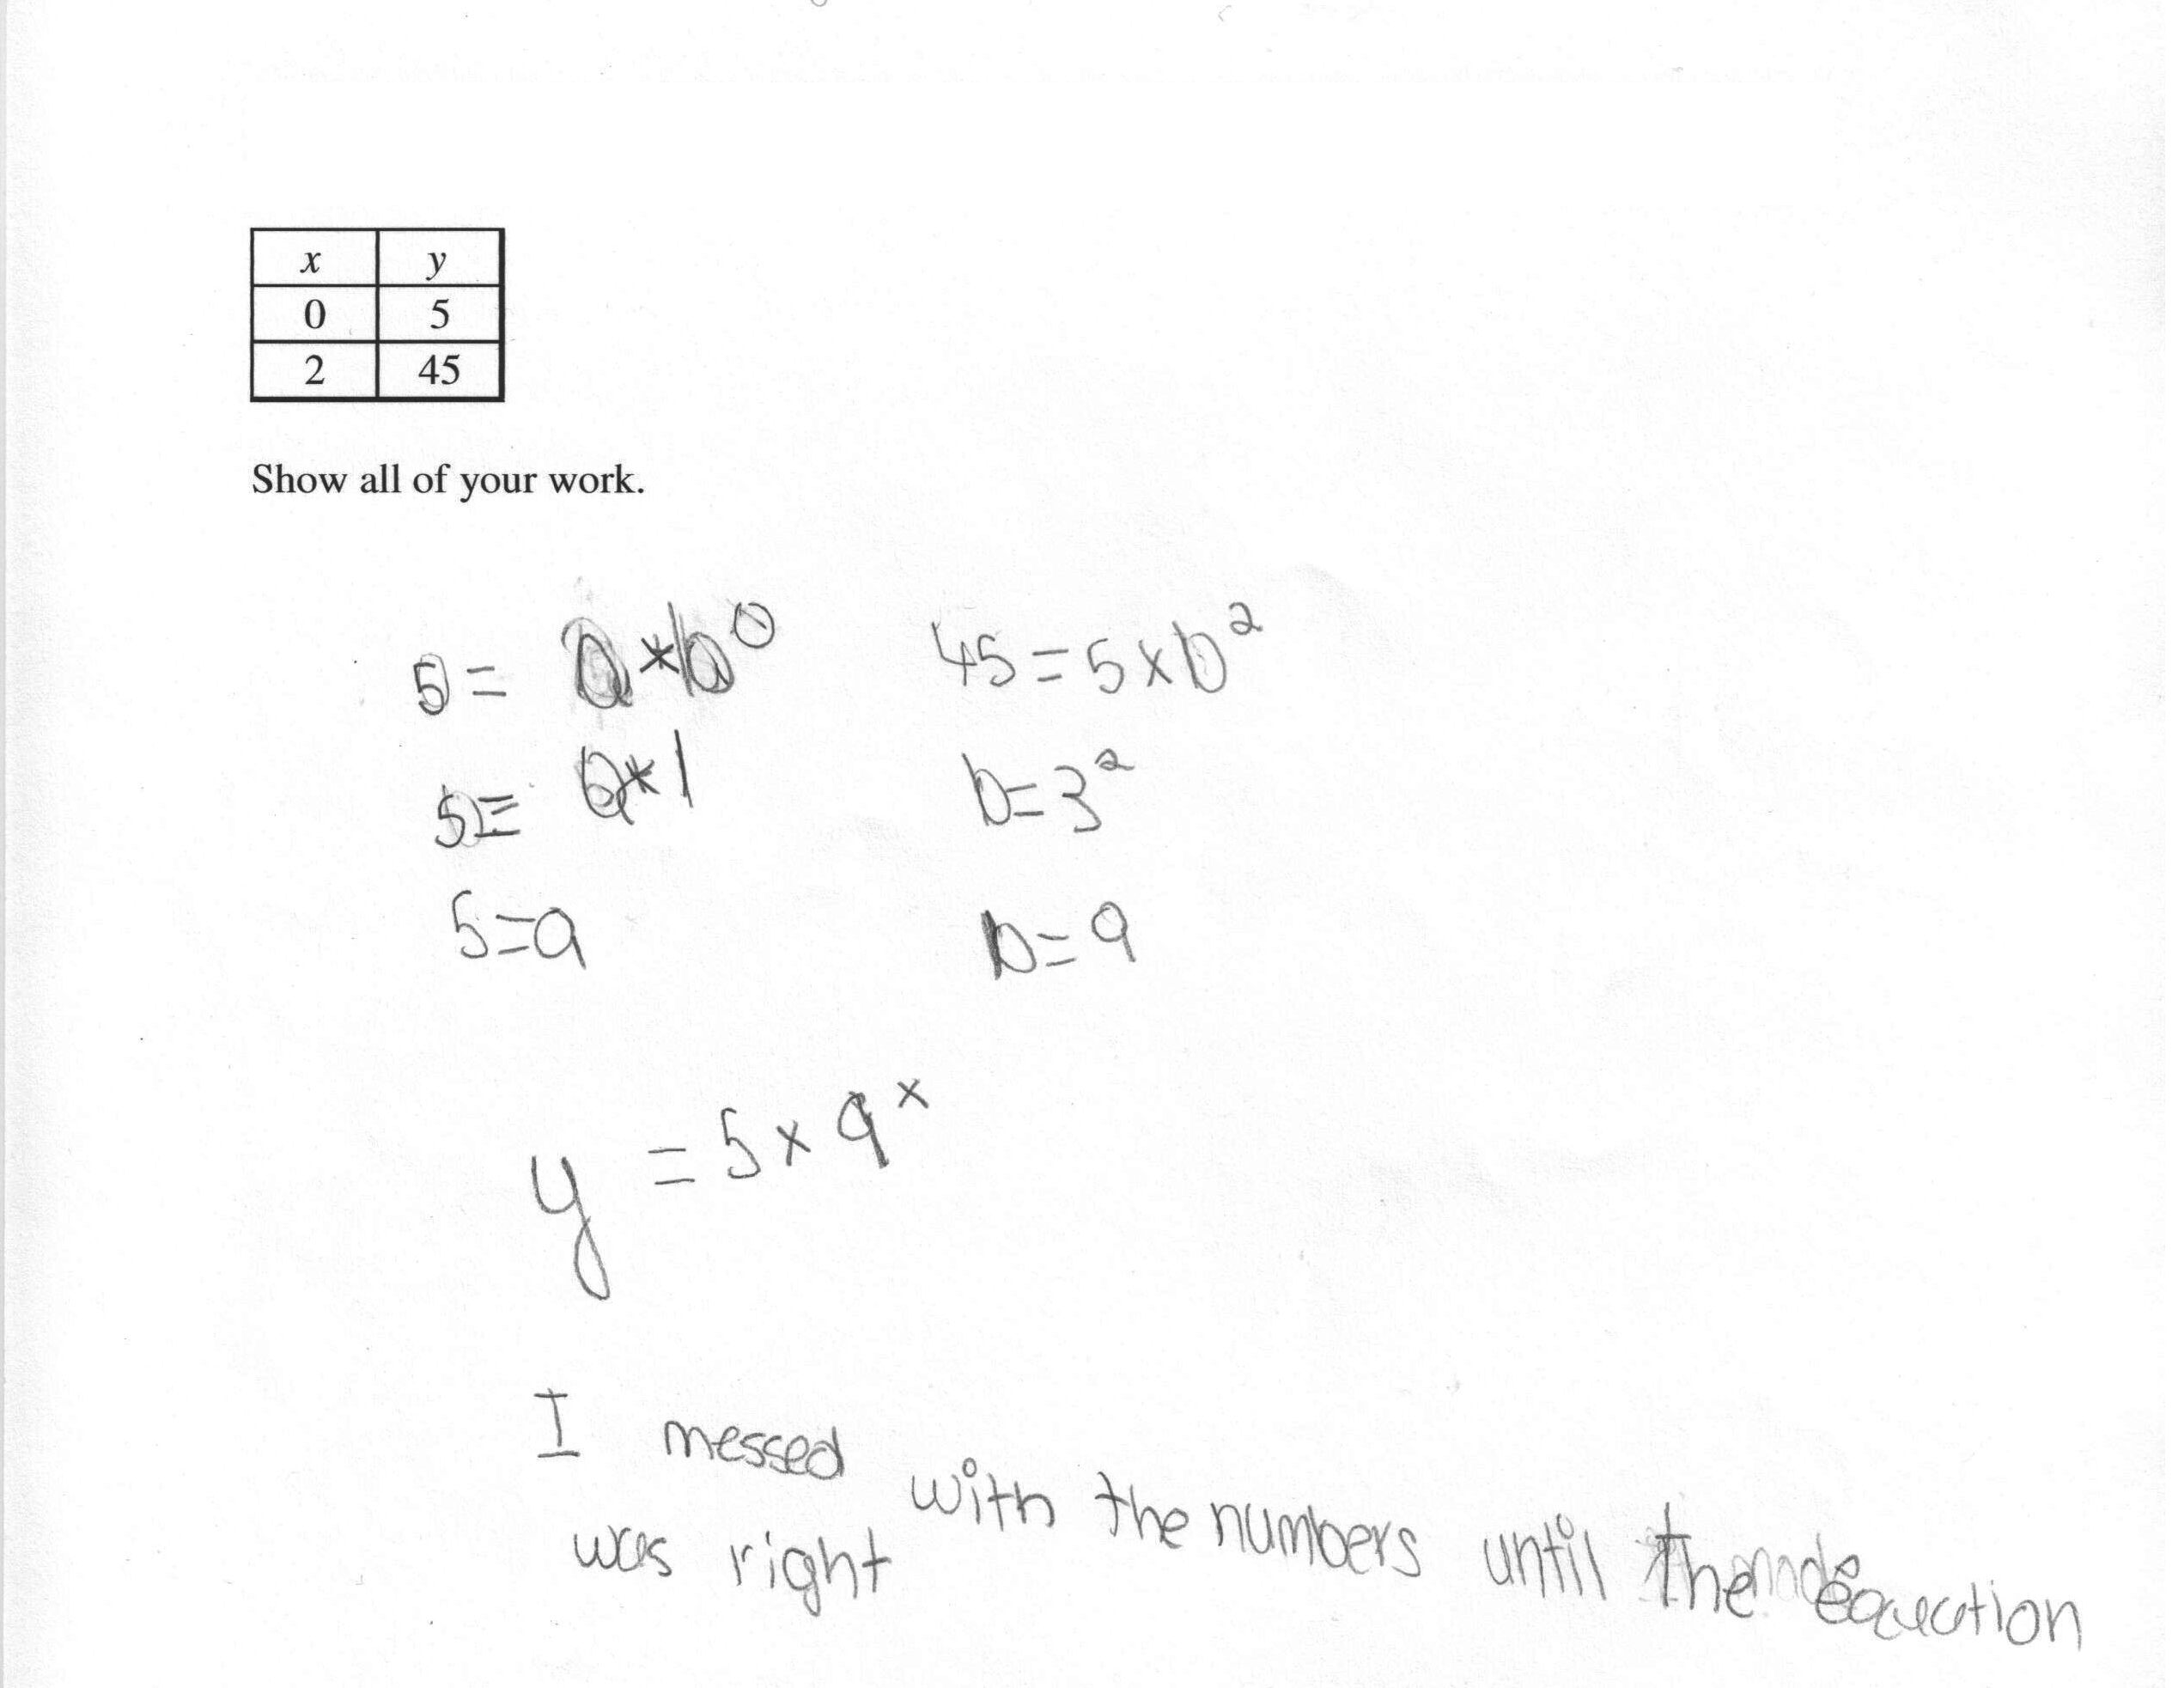 x y
0 5
2 45
Show all of your work.
5 = a * b^0
5 = a * 1
5 = a
45 = 5 x b^2
b = 3^2
b = 9
y = 5 x 9^x
I messed with the numbers until the equation
was right